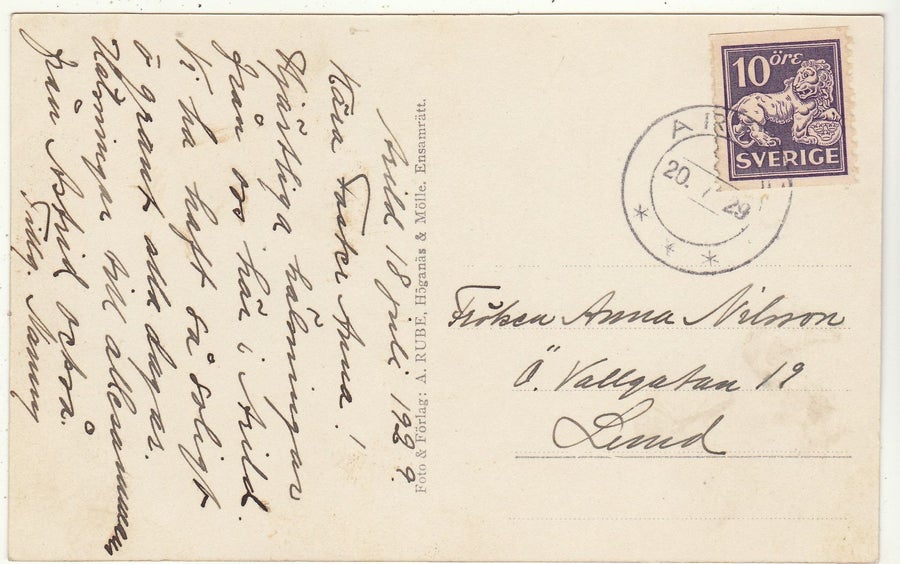 Arild 18 juli 1929.
Kära Faster Anna!
Hjärtliga hälsningar
från oss här i Arild.
Vi ha haft så soligt
o grannt alla dagar.
Hälsningar till allesammans
från Astrid också.
Tillg. Nanny
Foto & Förlag: A. RUBE, Höganäs & Mölle. Ensamrätt.
10 öre
SVERIGE
20. 7. 29
Fröken Anna Nilsson
Ö. Vallgatan 19
Lund